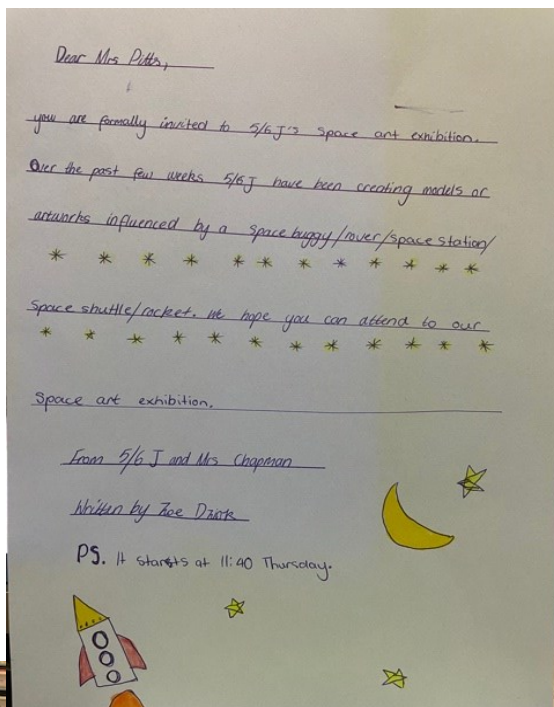 Dear Mrs Pitts,
you are formally invited to 5/6 J's space art exhibition.
Over the past few weeks 5/6 J have been creating models or
artworks influenced by a space buggy/rover/space station/
space shuttle/rocket. We hope you can attend to our
Space art exhibition.
From 5/6 J and Mrs Chapman
Written by Zoe
PS. It starts at 11:40 Thursday.